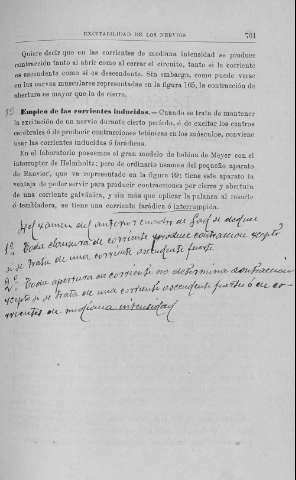 EXCITABILIDAD DE LOS NERVIOS 701
Quiere decir que en las corrientes de mediana intensidad se produce
contracción tanto al abrir como al cerrar el circuito, tanto si la corriente
es ascendente como si es descendente. Sin embargo, como puede verse
en las curvas musculares representadas en la figura 105, la contracción de
abertura es mayor que la de cierra.
Empleo de las corrientes inducidas. — Cuando se trata de mantener
la excitación de un nervio durante cierto período, ó de excitar los centros
cerebrales ó de producir contracciones tetánicas en los músculos, conviene
usar las corrientes inducidas ó farádicas.
En el laboratorio poseemos el gran modelo de bobina de Meyer con el
interruptor de Helmholtz; pero de ordinario usamos del pequeño aparato
de Ranvier, que va representado en la figura 10; tiene este aparato la
ventaja de poder servir para producir contracciones por cierra y abertura
de una corriente galvánica, y sin más que aplicar la palanca al resorte
ó temblador, se tiene una corriente farádica ó interrumpida.
del examen del anterior cuadro de se deduce
1º Toda clausura de corriente produce contraccion excepto
si se trata de una corriente ascendente fuerte.
2º Toda apertura de corriente no determina contraccion
excepto si se trata de una corriente ascendente fuerte ó de co-
rrientes de mediana intensidad